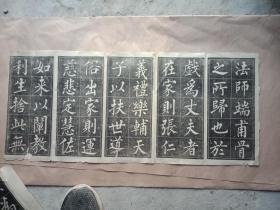 法師端甫骨
之所歸也於
戲爲丈夫者
在家則張仁
義禮樂輔天
子以扶世導
俗出家則運
慈悲定慧佐
如來以闡教
利生捨此無